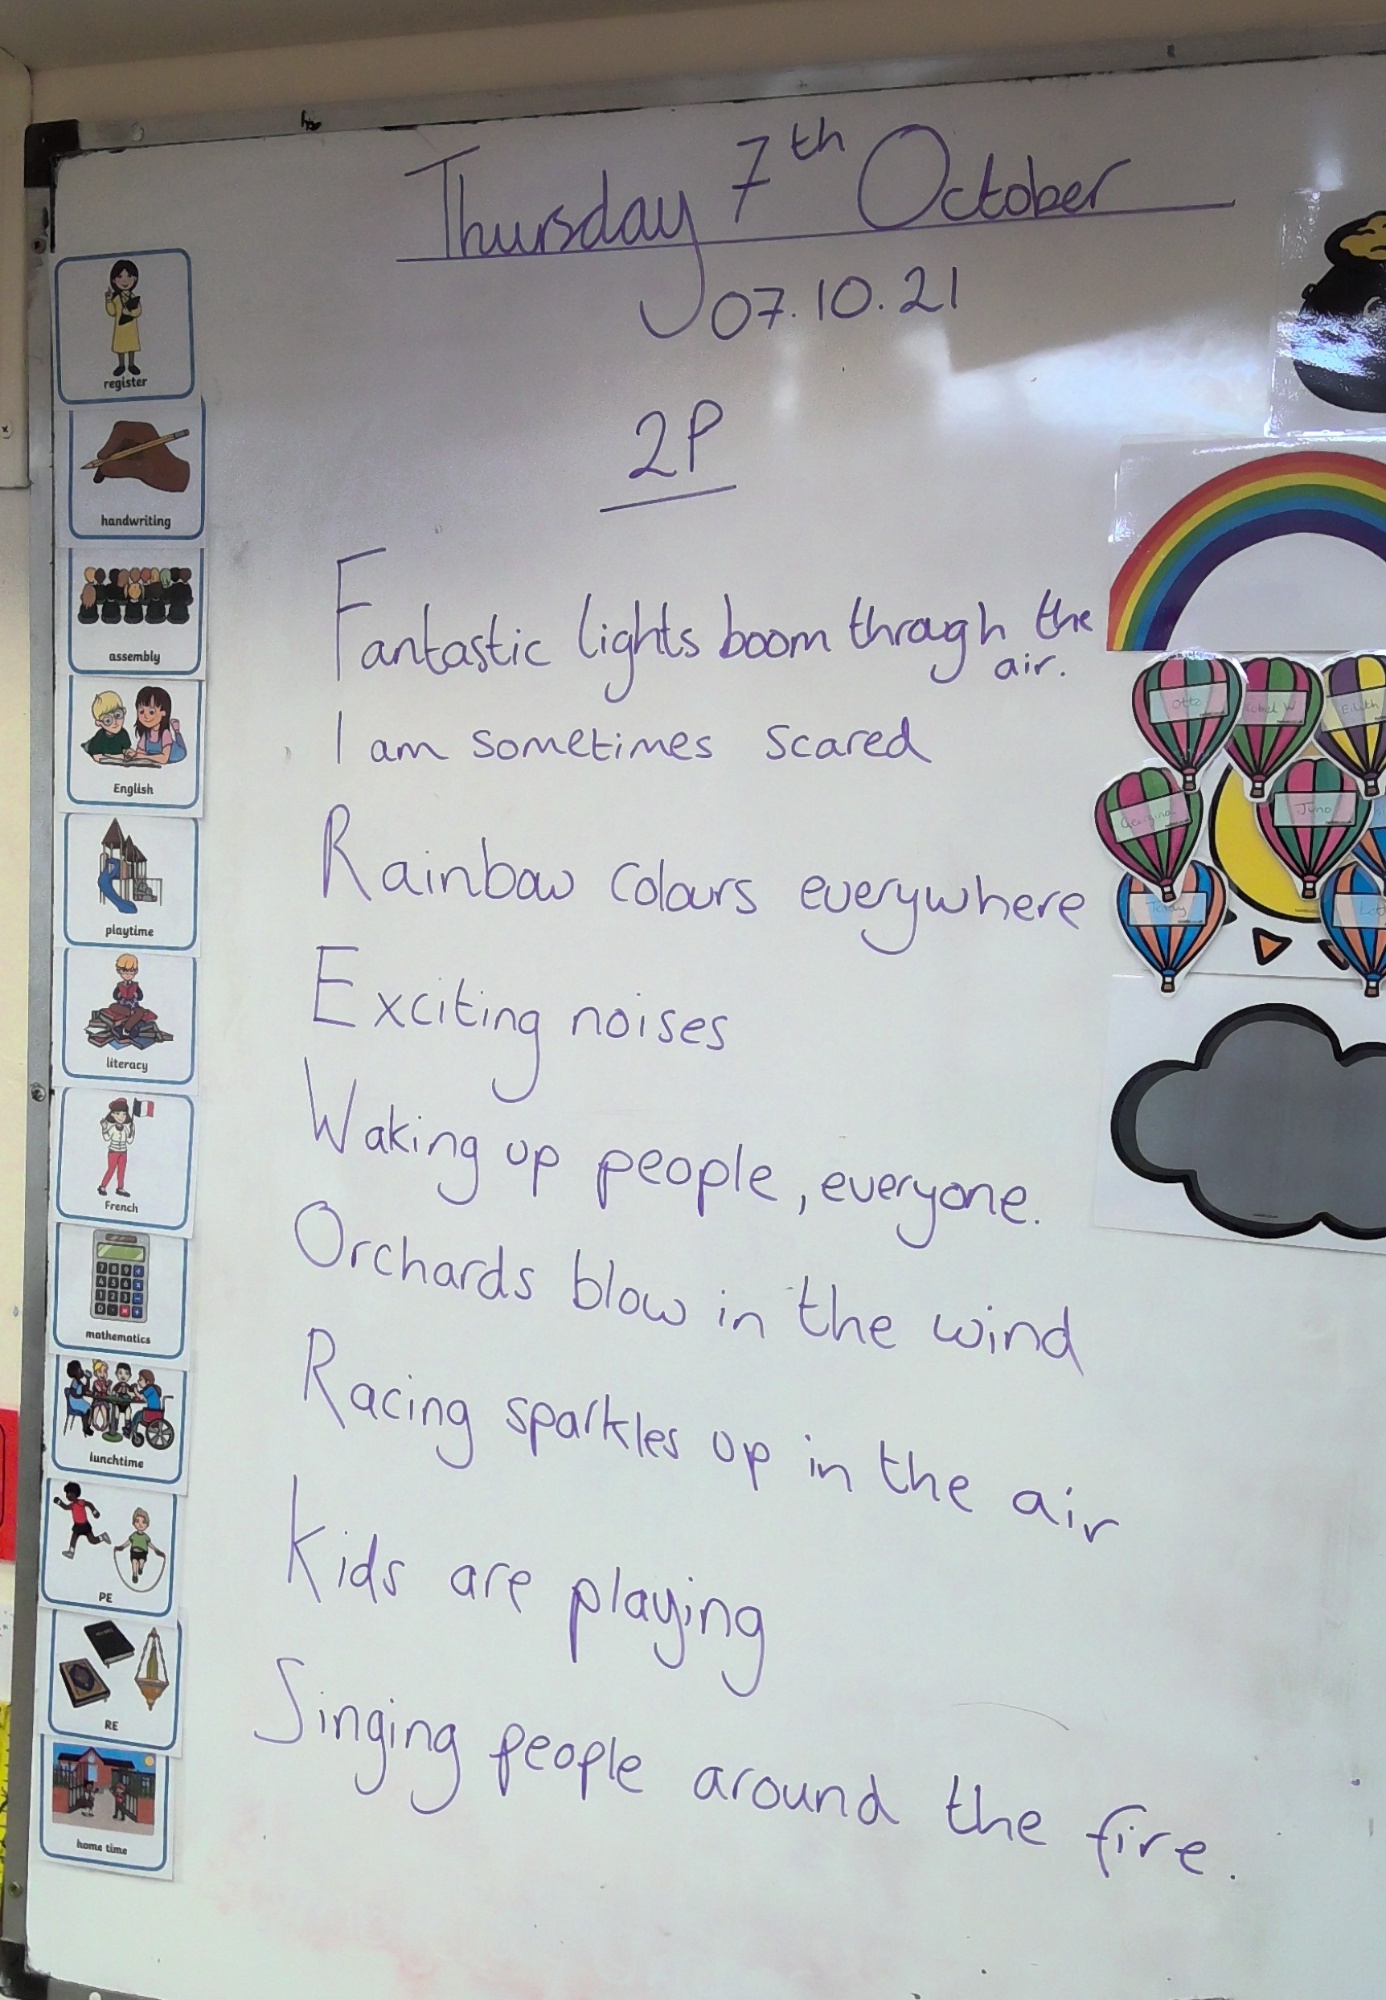 Thursday 7th October
07.10.21
2P
Fantastic lights boom through the
air.
I am sometimes scared
Rainbow colours everywhere
Exciting noises
Waking up people, everyone.
Orchards blow in the wind
Racing sparkles up in the air
Kids are playing
Singing people around the fire.
register
handwriting
assembly
English
playtime
literacy
French
mathematics
lunchtime
PE
RE
home time
Otto
Juno